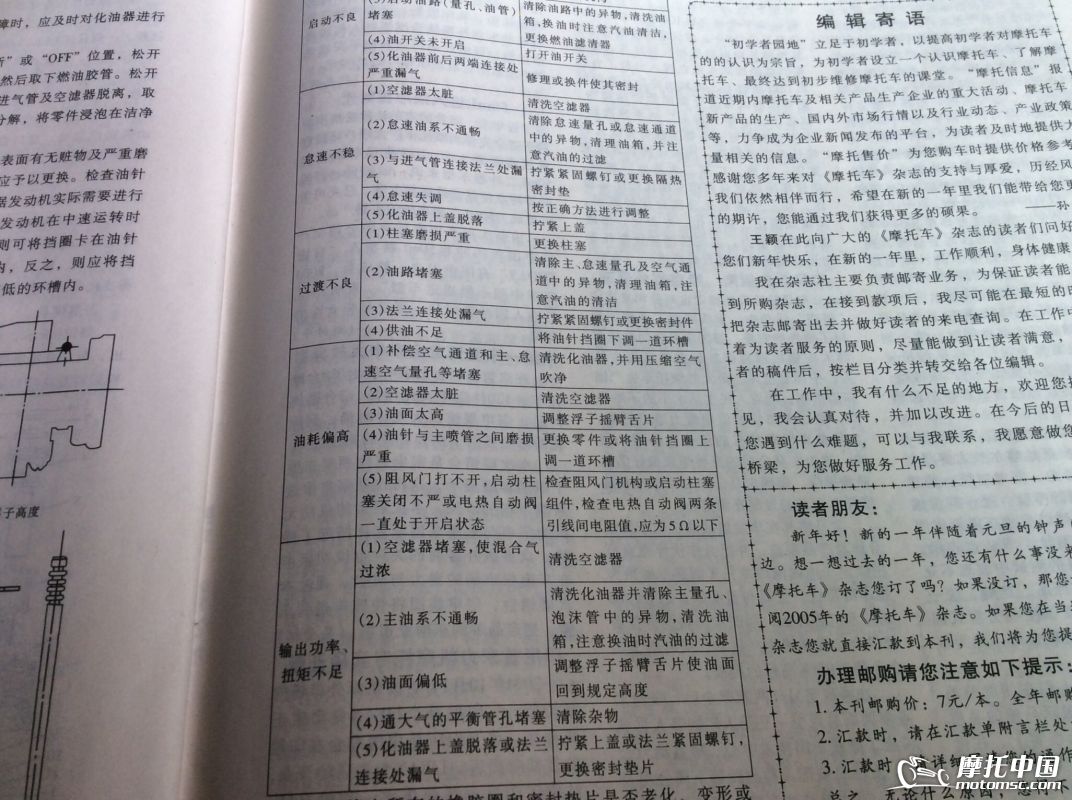 障时，应及时对化油器进行
”或“OFF”位置，松开
然后取下燃油胶管。松开
进气管及空滤器脱离，取
分解，将零件浸泡在洁净
表面有无赃物及严重磨
应予以更换。检查油针
据发动机实际需要进行
发动机在中速运转时
则可将挡圈卡在油针
内，反之，则应将挡
低的环槽内。
子高度
启动不良
堵塞
清除油路中的异物，清洗油
箱，换油时注意汽油清洁，
更换燃油滤清器
(4)油开关未开启
打开油开关
(5)化油器前后两端连接处
严重漏气
修理或换件使其密封
怠速不稳
(1)空滤器太脏
清洗空滤器
(2)怠速油系不通畅
清除怠速量孔或怠速通道
中的异物，清理油箱，并注
意汽油的过滤
(3)与进气管连接法兰处漏
气
拧紧紧固螺钉或更换隔热
密封垫
(4)怠速失调
按正确方法进行调整
(5)化油器上盖脱落
拧紧上盖
过渡不良
(1)柱塞磨损严重
更换柱塞
(2)油路堵塞
清除主、怠速量孔及空气通
道中的异物，清理油箱，注
意汽油的清洁
(3)法兰连接处漏气
拧紧紧固螺钉或更换密封件
(4)供油不足
将油针挡圈下调一道环槽
油耗偏高
(1)补偿空气通道和主、怠
速空气量孔等堵塞
清洗化油器，并用压缩空气
吹净
(2)空滤器太脏
清洗空滤器
(3)油面太高
调整浮子摇臂舌片
(4)油针与主喷管之间磨损
严重
更换零件或将油针挡圈上
调一道环槽
(5)阻风门打不开，启动柱
塞关闭不严或电热自动阀
一直处于开启状态
检查阻风门机构或启动柱塞
组件，检查电热自动阀两条
引线间电阻值，应为5Ω以下
输出功率、
扭矩不足
(1)空滤器堵塞，使混合气
过浓
清洗空滤器
(2)主油系不通畅
清洗化油器并清除主量孔、
泡沫管中的异物，清洗油
箱，注意换油时汽油的过滤
(3)油面偏低
调整浮子摇臂舌片使油面
回到规定高度
(4)通大气的平衡管孔堵塞
清除杂物
(5)化油器上盖脱落或法兰
连接处漏气
拧紧上盖或法兰紧固螺钉，
更换密封垫片
编辑寄语
“初学者园地”立足于初学者，以提高初学者对摩托车
的的认识为宗旨，为初学者设立一个认识摩托车、了解摩
托车、最终达到初步维修摩托车的课堂。“摩托信息”报
道近期内摩托车及相关产品生产企业的重大活动、摩托车
新产品的生产、国内外市场行情以及行业动态、产业政策
等，力争成为企业新闻发布的平台，为读者及时地提供大
量相关的信息。“摩托售价”为您购车时提供价格参考
感谢您多年来对《摩托车》杂志的支持与厚爱，历经风
我们依然相伴而行，希望在新的一年里我们能带给您更
的期许，您能通过我们获得更多的硕果。 ——孙
王颖在此向广大的《摩托车》杂志的读者们问好
您们新年快乐，在新的一年里，工作顺利，身体健康
我在杂志社主要负责邮寄业务，为保证读者能
到所购杂志，在接到款项后，我尽可能在最短的时
把杂志邮寄出去并做好读者的来电查询。在工作中
着为读者服务的原则，尽量能做到让读者满意，
者的稿件后，按栏目分类并转交给各位编辑。
在工作中，我有什么不足的地方，欢迎您
见，我会认真对待，并加以改进。在今后的日
您遇到什么难题，可以与我联系，我愿意做您
桥梁，为您做好服务工作。
读者朋友：
新年好！新的一年伴随着元旦的钟声
边。想一想过去的一年，您还有什么事没
《摩托车》杂志您订了吗？如果没订，那您
阅2005年的《摩托车》杂志。如果您在当
杂志您就直接汇款到本刊，我们将为您提
办理邮购请您注意如下提示：
1.本刊邮购价：7元/本。全年邮购
2.汇款时，请在汇款单附言栏处
3.汇款时
摩托中国
motomsc.com